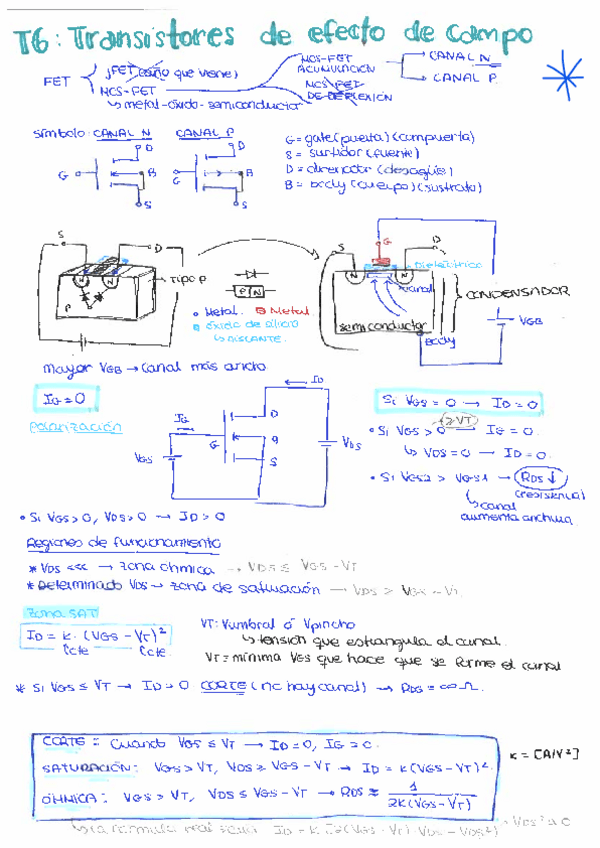 T6: Transistores de efecto de campo
FET
JFET (año que viene)
MOS-FET
↳ metal-óxido-semiconductor
MOS-FET
ACUMULACIÓN
MOS-FET
DE DEPLEXIÓN
CANAL N
CANAL P
símbolo: CANAL N CANAL P
D
G
B
S
D
G
B
S
G = gate (puerta) (compuerta)
S = surtidor (fuente)
D = drenador (desagüe)
B = body (cuerpo) (sustrato)
S
D
N
N
P
Tipo P
P N
Metal.
Metal
óxido de silicio
↳ AISLANTE.
S
G
D
Dieléctrico
N
N
canal
semiconductor
Body
CONDENSADOR
VGB
Mayor VGB → Canal más ancho
IG = 0
Polarización
IG
ID
G
D
B
S
VGS
VDS
Si VGS = 0 → ID = 0
• Si VGS > 0 (≥VT) → IG = 0.
↳ VDS = 0 → ID = 0.
• Si VGS2 > VGS1 → RDS ↓
(resistencia)
↳ canal
aumenta anchura.
• Si VGS > 0, VDS > 0 → ID > 0
Regiones de funcionamiento
* VDS <<< → zona óhmica → VDS ≤ VGS - VT
* Determinado VDS → zona de saturación → VDS > VGS - VT
Zona SAT
ID = k · (VGS - VT)²
↳cte ↳cte.
VT: Vumbral ó Vpincho
↳ tensión que estrangula el canal.
VT = mínima VGS que hace que se forme el canal
* Si VGS ≤ VT → ID = 0 CORTE (no hay canal) → RDS = ∞ Ω.
CORTE: Cuando VGS ≤ VT → ID = 0, IG = 0.
SATURACIÓN: VGS > VT, VDS ≥ VGS - VT → ID = k (VGS - VT)²
ÓHMICA: VGS > VT, VDS ≤ VGS - VT → RDS ≈ 1 / 2k (VGS - VT)
K = [A/V²]
↳ La fórmula real sería ID = k [2(VGS - VT) · VDS - VDS²]
VDS² ≈ 0